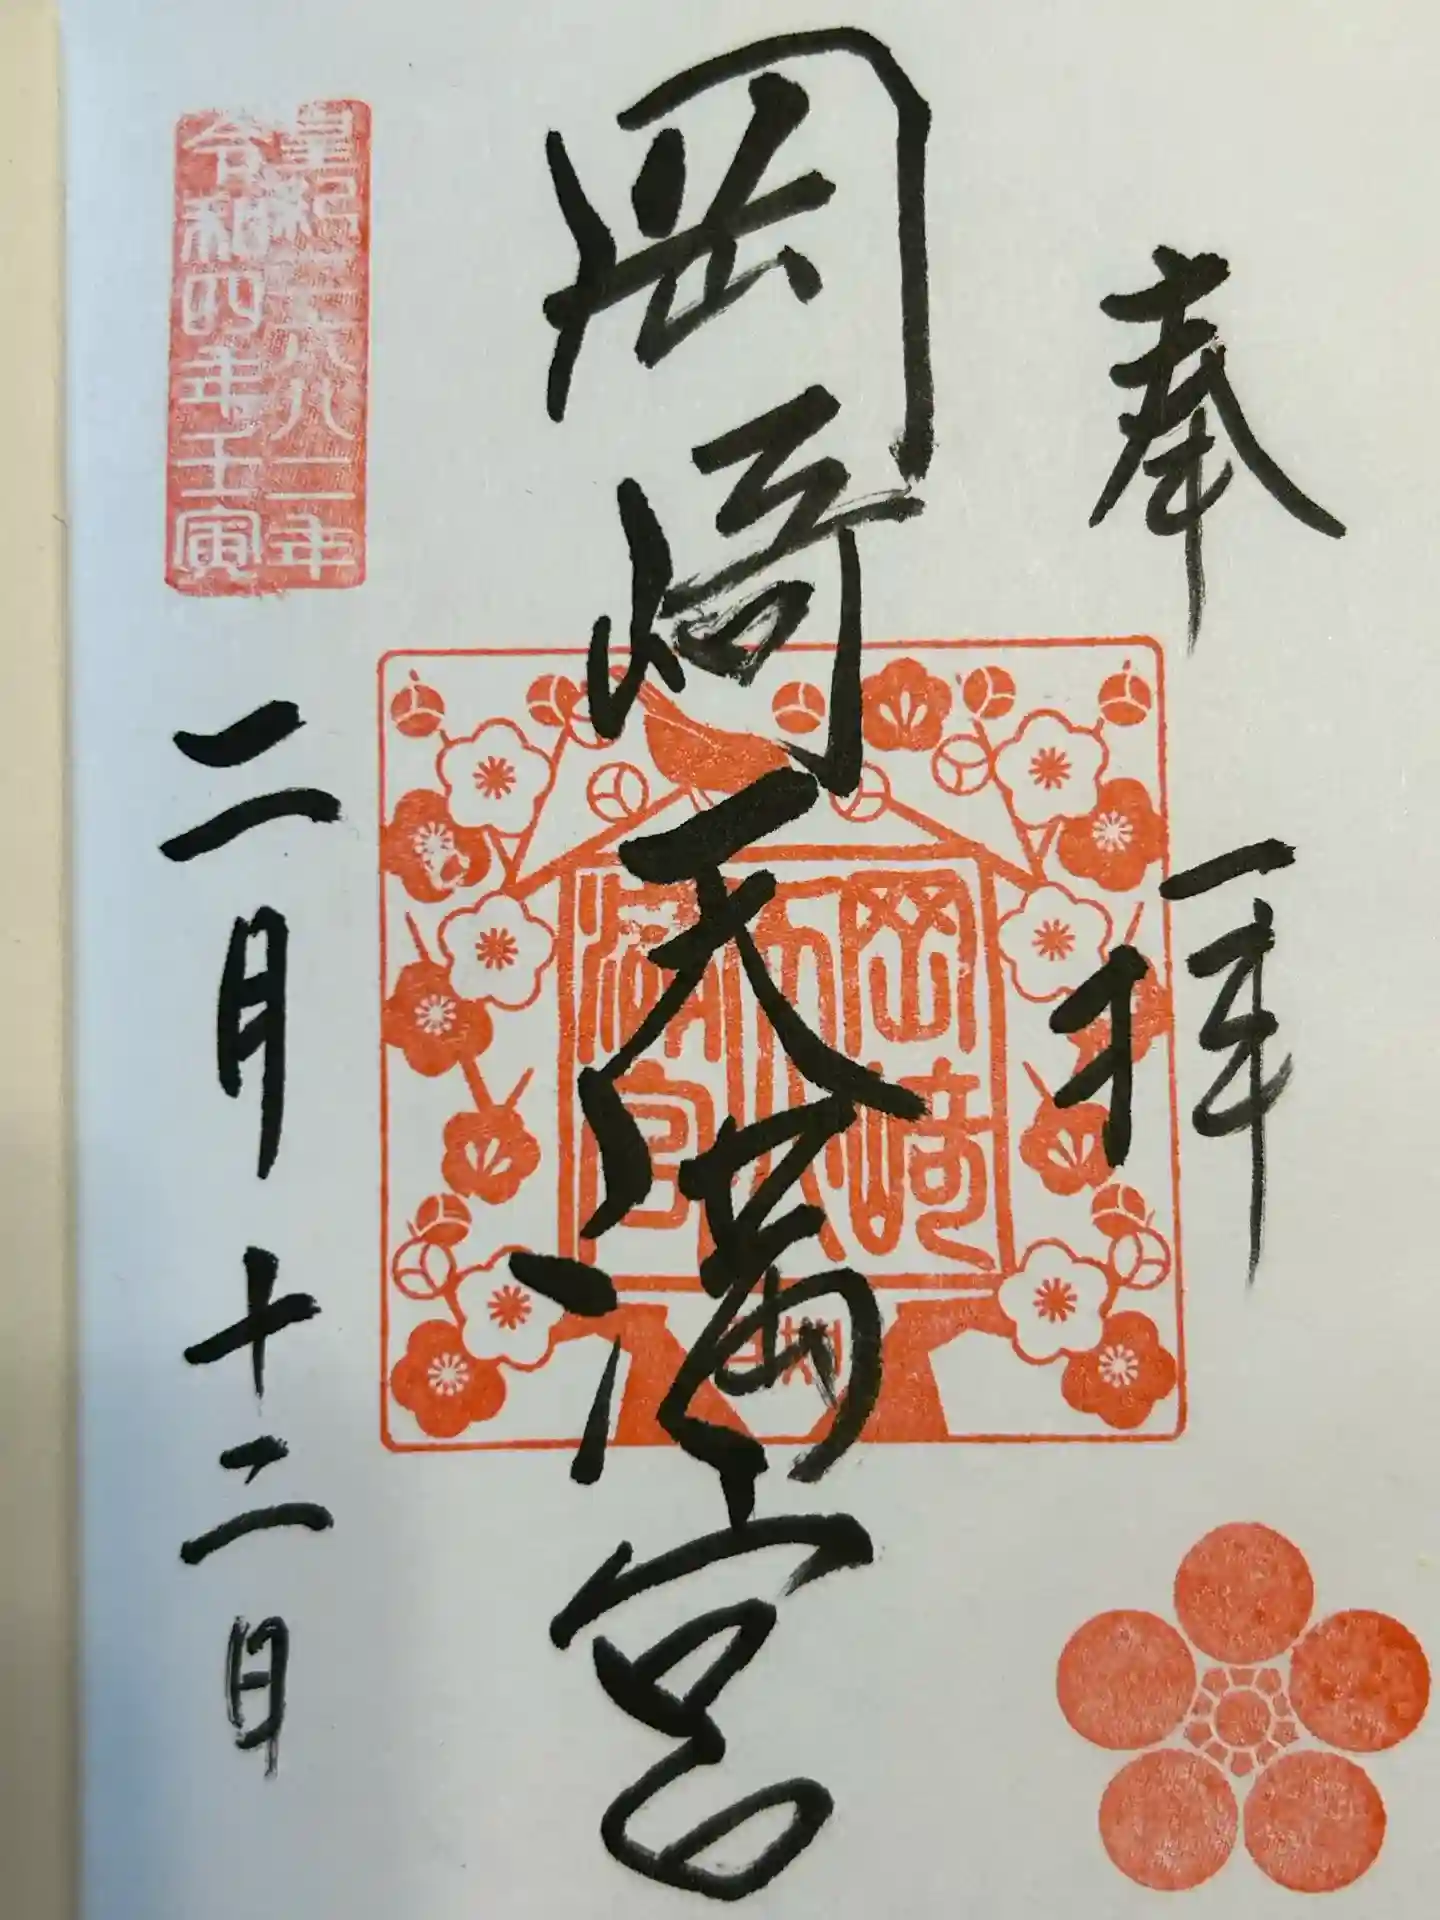 奉拝
岡崎天満宮
岡崎
天
満宮
皇紀二六八二年
令和四年壬寅
二月十二日